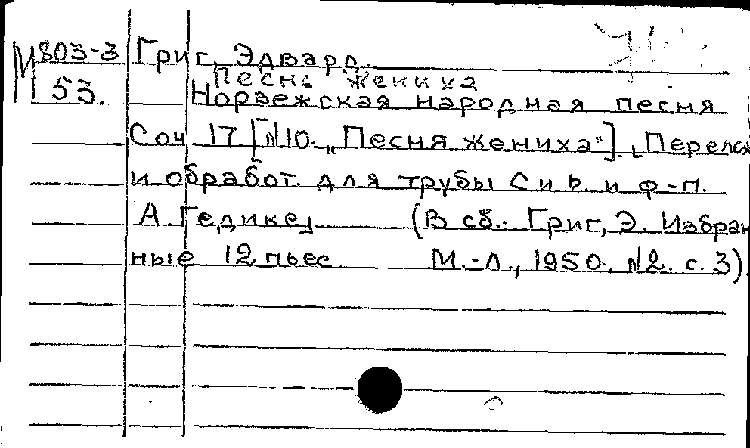 М803-3 Григ, Эдвард.
Песнь жениха
53. Норвежская народная песня
Соч 17 [№10. „Песня жениха"]. [Перелож
и обработ. для трубы С и B и ф-п.
А. Гедике] (В сб.: Григ, Э. Избран
ные 12 пьес М.-Л., 1950. №2. с. 3).